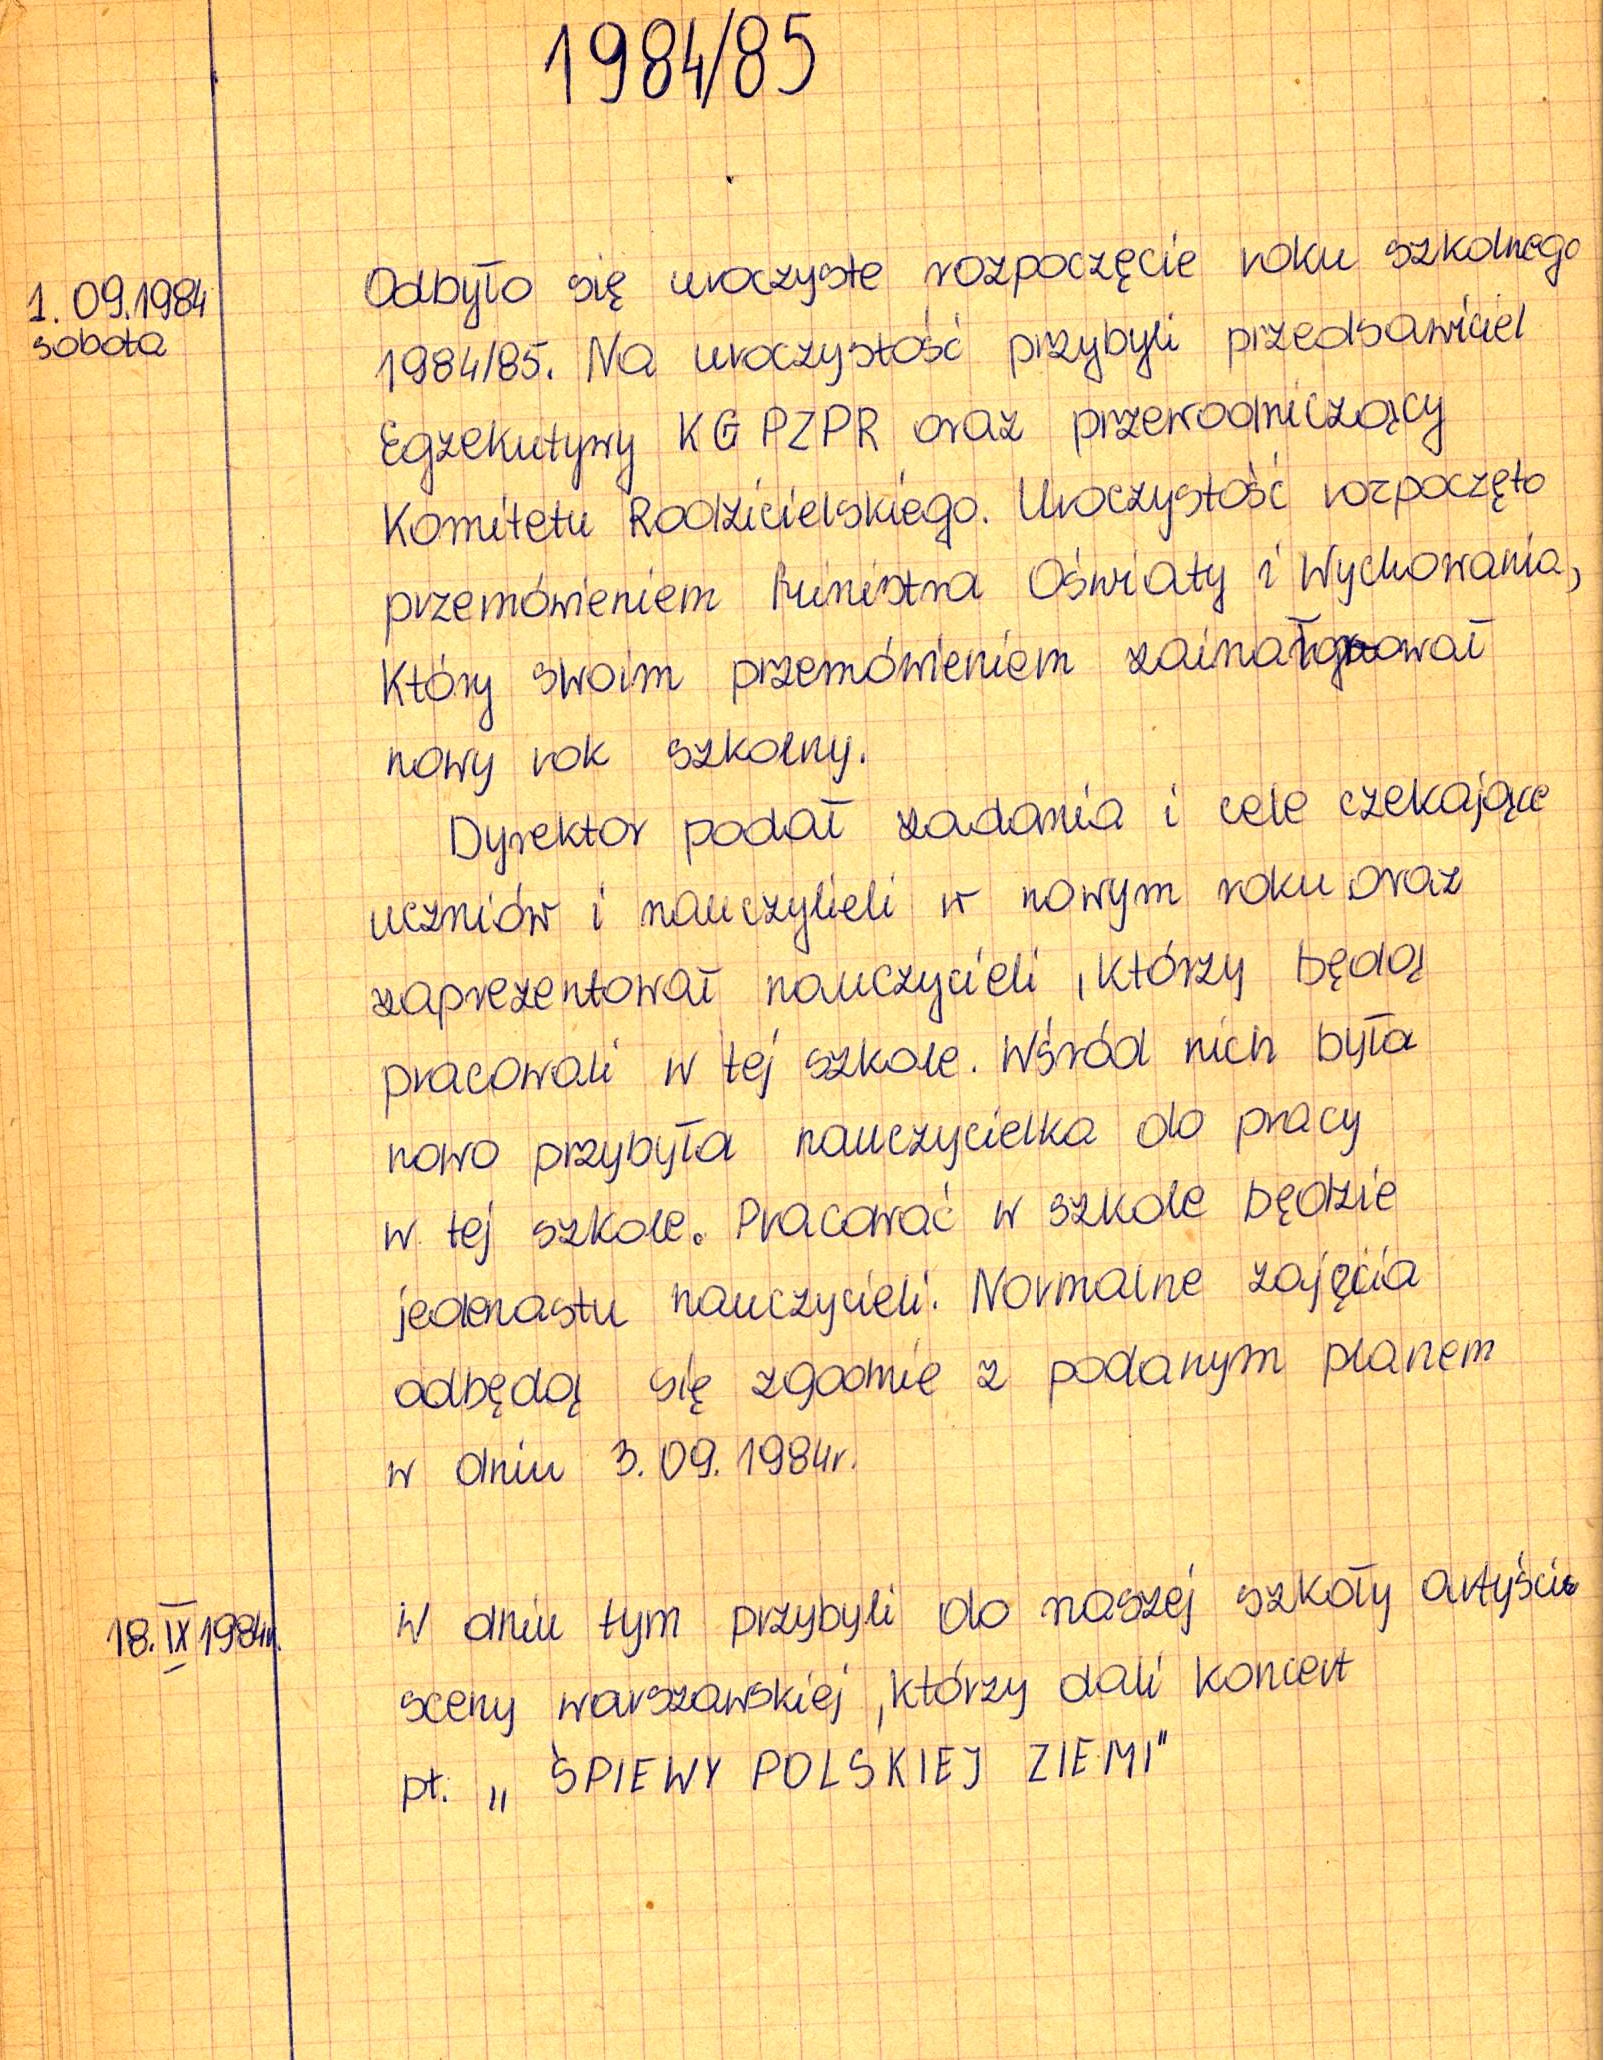 1984/85
1. 09.1984
sobota
Odbyło się uroczyste rozpoczęcie roku szkolnego
1984/85. Na uroczystość przybyli przedsawiciel
Egzekutywy KG PZPR oraz przewodniczący
Komitetu Rodzicielskiego. Uroczystość rozpoczęto
przemówieniem Ministra Oświaty i Wychowania,
który swoim przemówieniem
nowy rok szkolny.
Dyrektor podał zadania i cele czekające
uczniów i nauczylieli w nowym roku oraz
zaprezentował nauczycieli, którzy będą
pracowali w tej szkole. Wśród nich była
nowo przybyła nauczycielka do pracy
w tej szkole. Pracować w szkole będzie
jedenastu nauczycieli. Normalne zajęcia
odbędą się zgodnie z podanym planem
w dniu 3.09.1984r.
18. IX 1984r.
W dniu tym przybyli do naszej szkoły artyście
sceny warszawskiej, którzy dali koncert
pt. „ŚPIEWY POLSKIEJ ZIEMI"